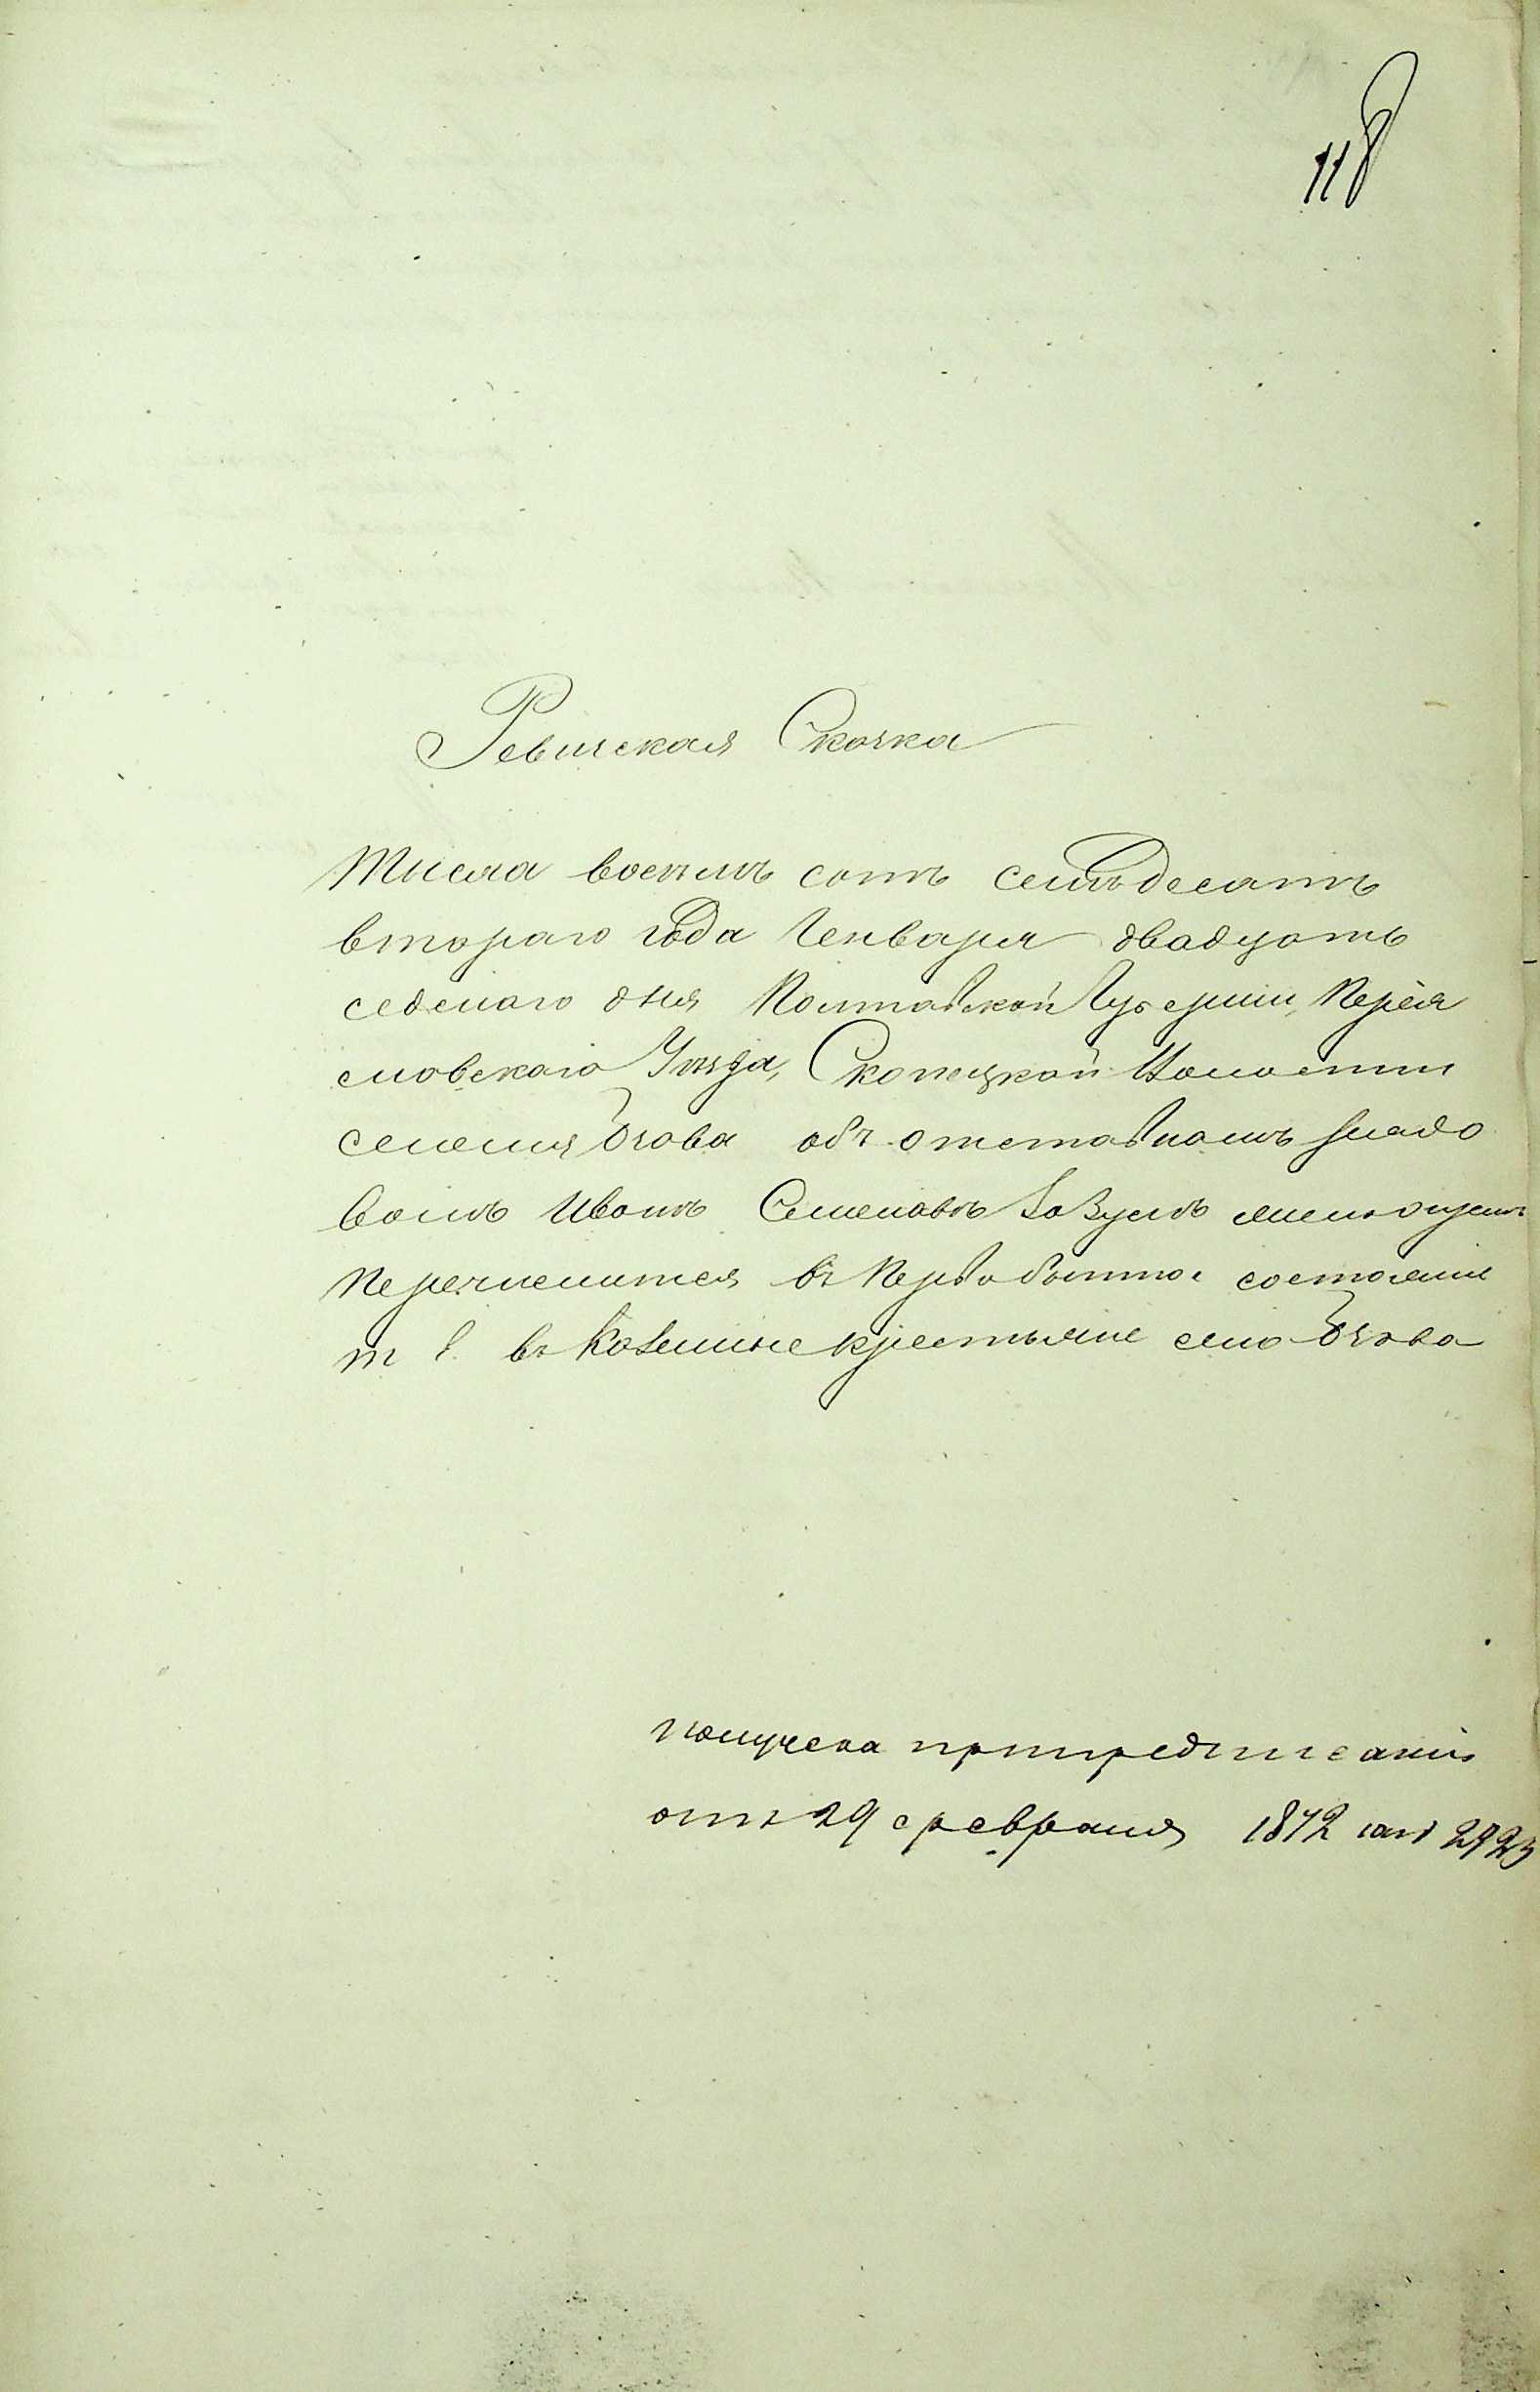 118
Ревизская Сказка
Тысяча восемь сотъ семьдесятъ
втораго года Генваря двадцать
седьмаго дня Полтавской Губерніи, Перея
словскаго Уѣзда, Скопецкой Волости
селенія отставномъ рядо
вомъ Иванѣ Семеновѣ
перечислится въ Первобытное состояніе
т. е. въ Казенные крестьяне село
получена при предписаніи
отъ 29 февраля 1872 за № 2923